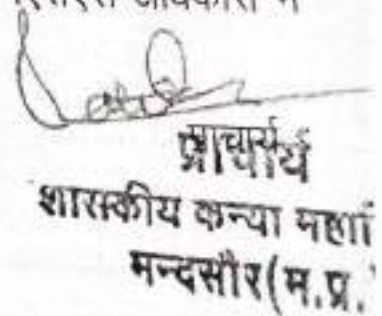 अधिकारी
प्राचार्य
प्राचार्य
शासकीय कन्या महा
मन्दसौर(म.प्र.